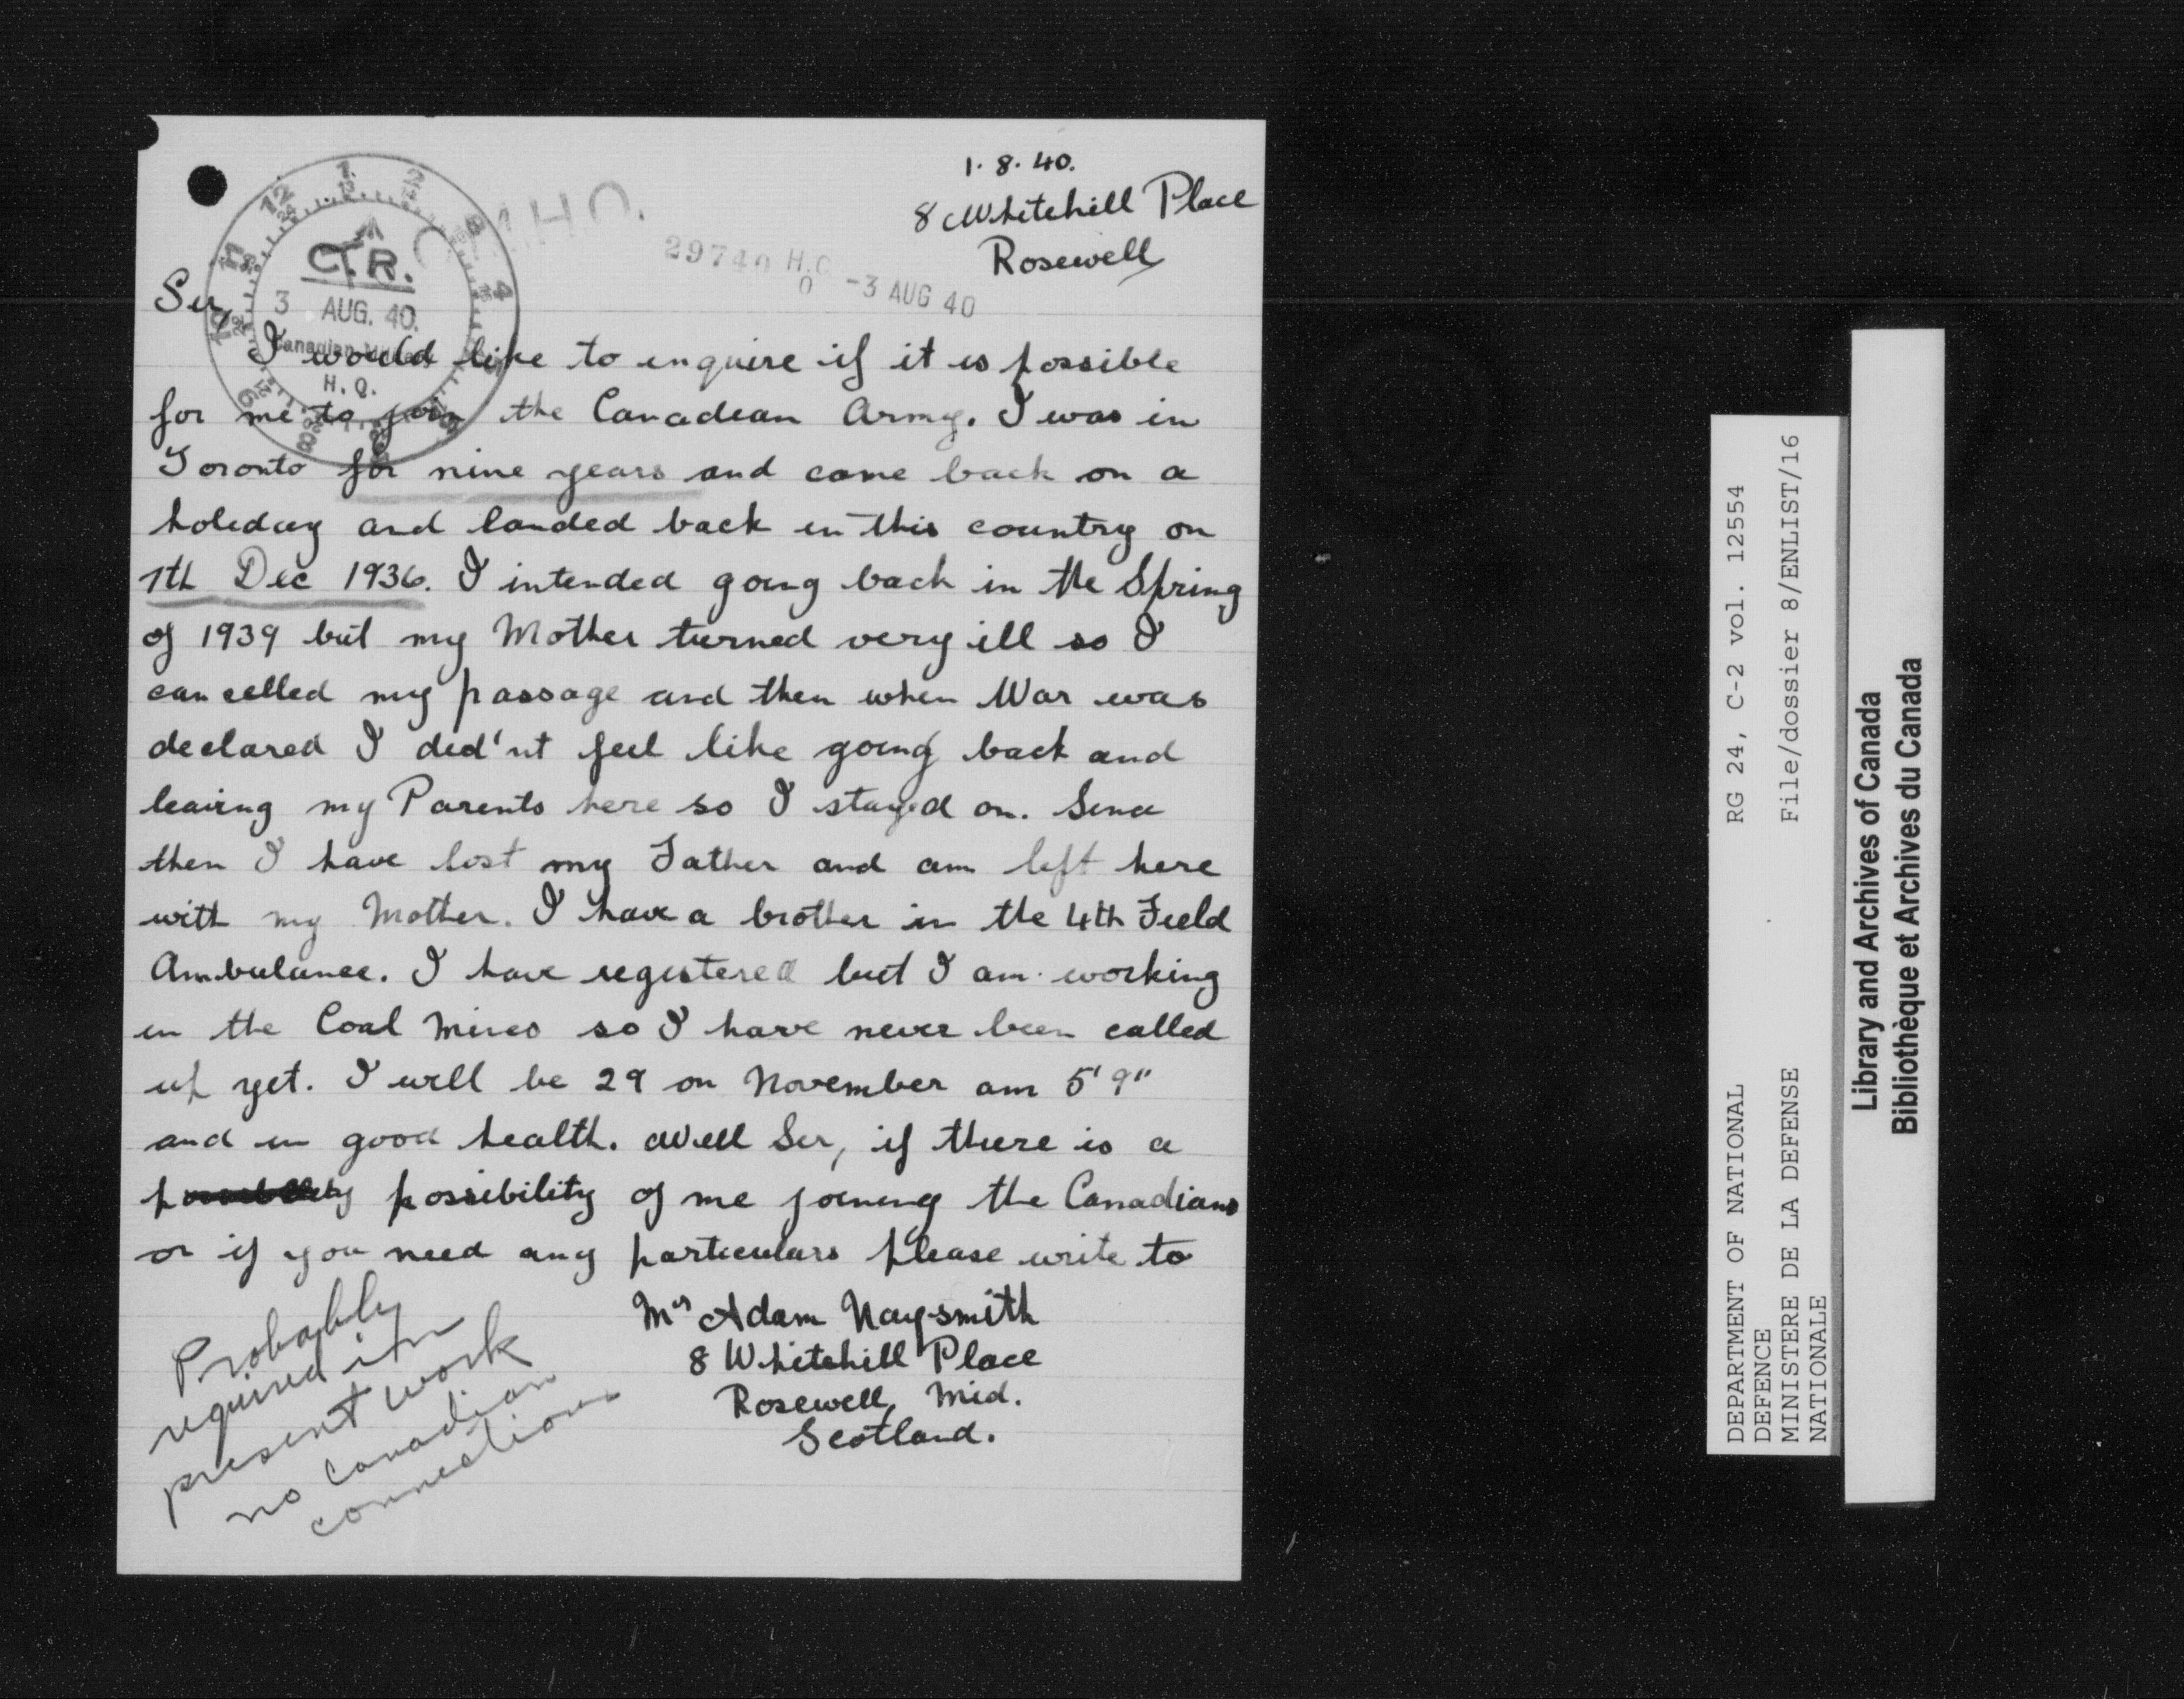 1. 8. 40.
8 Whitehill Place
Rosewell
C.M.H.Q.
29740 H.Q.
0 -3 AUG 40
C.T.R.
3 AUG. 40.
Canadian
H. Q.
Sir,
I would like to inquire if it is possible
for me to join the Canadian Army. I was in
Toronto for nine years and came back on a
holiday and landed back in this country on
7th Dec 1936. I intended going back in the Spring
of 1939 but my Mother turned very ill so I
cancelled my passage and then when War was
declared I did'nt feel like going back and
leaving my Parents here so I stayed on. Since
then I have lost my Father and am left here
with my Mother. I have a brother in the 4th Field
Ambulance. I have registered but I am working
in the Coal Mines so I have never been called
up yet. I will be 29 on November am 5' 9"
and in good health. Well Sir, if there is a
possibility of me joining the Canadians
or if you need any particulars please write to
Mr Adam Naysmith
8 Whitehill Place
Rosewell, Mid.
Scotland.
Probably
required in
present work
no Canadian
connections
DEPARTMENT OF NATIONAL
DEFENCE
MINISTERE DE LA DEFENSE
NATIONALE
RG 24, C-2 vol. 12554
File/dossier 8/ENLIST/16
Library and Archives of Canada
Bibliothèque et Archives du Canada